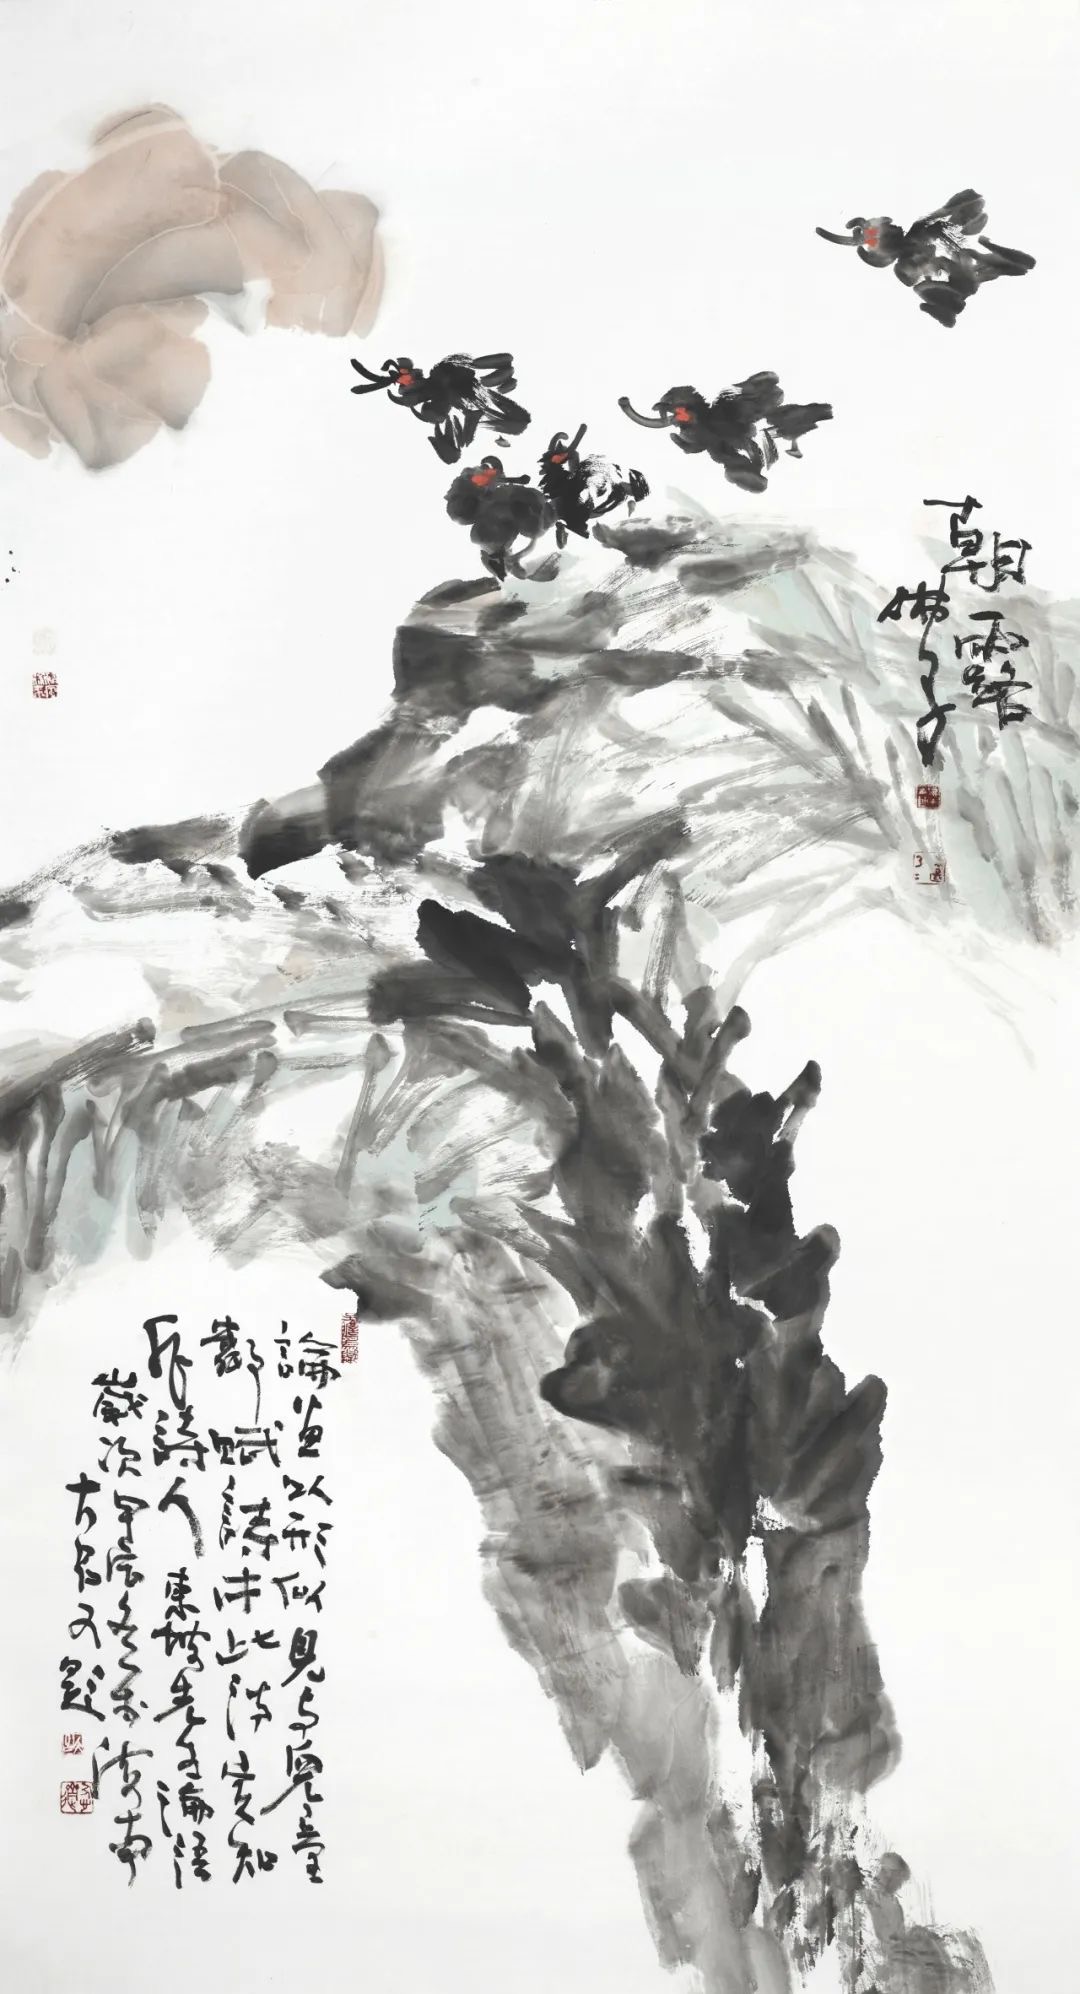 朝露
佛子
論畫以形似見与兒童
鄰賦詩必此詩定知
非詩人 東坡先生論語
歲次甲辰冬於濟南
又題